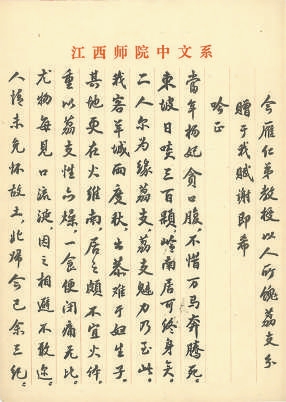 江西师院中文系
今雁仁弟教授以人所餽荔支分
赠于我赋谢即希
吟正
當年杨妃貪口腹。不惜万马奔腾死。
東坡日啖三百顆。岭南居可终身矣。
二人尔为缘荔支。荔支魅力乃至此。
我客羊城两度秋。出恭难于妇生子。
其地更在火维南。居之颇不宜火体。
重以荔支性亦燥。一食便闭痛无比。
尤物每见口流涎。因之相避不敢迩。
人情未免怀故土。北归今已余三纪。